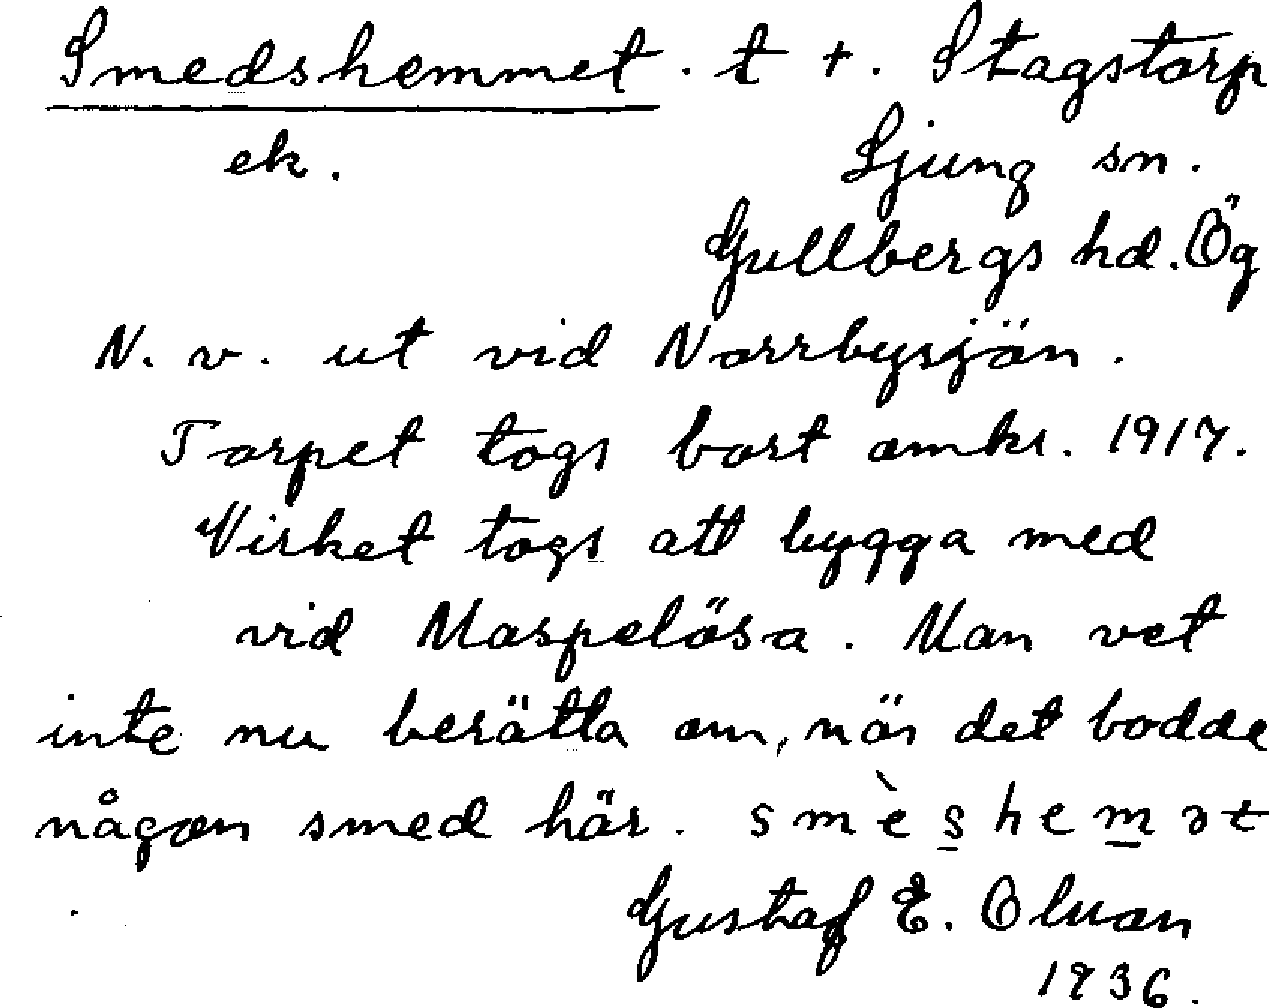 Smedshemmet. t +. Stagstorp
ek. Ljung sn.
Gullbergs hd. Ög
N. v. ut vid Norrbysjön.
Torpet togs bort omkr. 1917.
Virket togs att bygga med
vid Maspelösa. Man vet
inte nu berätta om, när det bodde
någon smed här. smès̲hem̲ət
Gustaf E. Olson
1936.